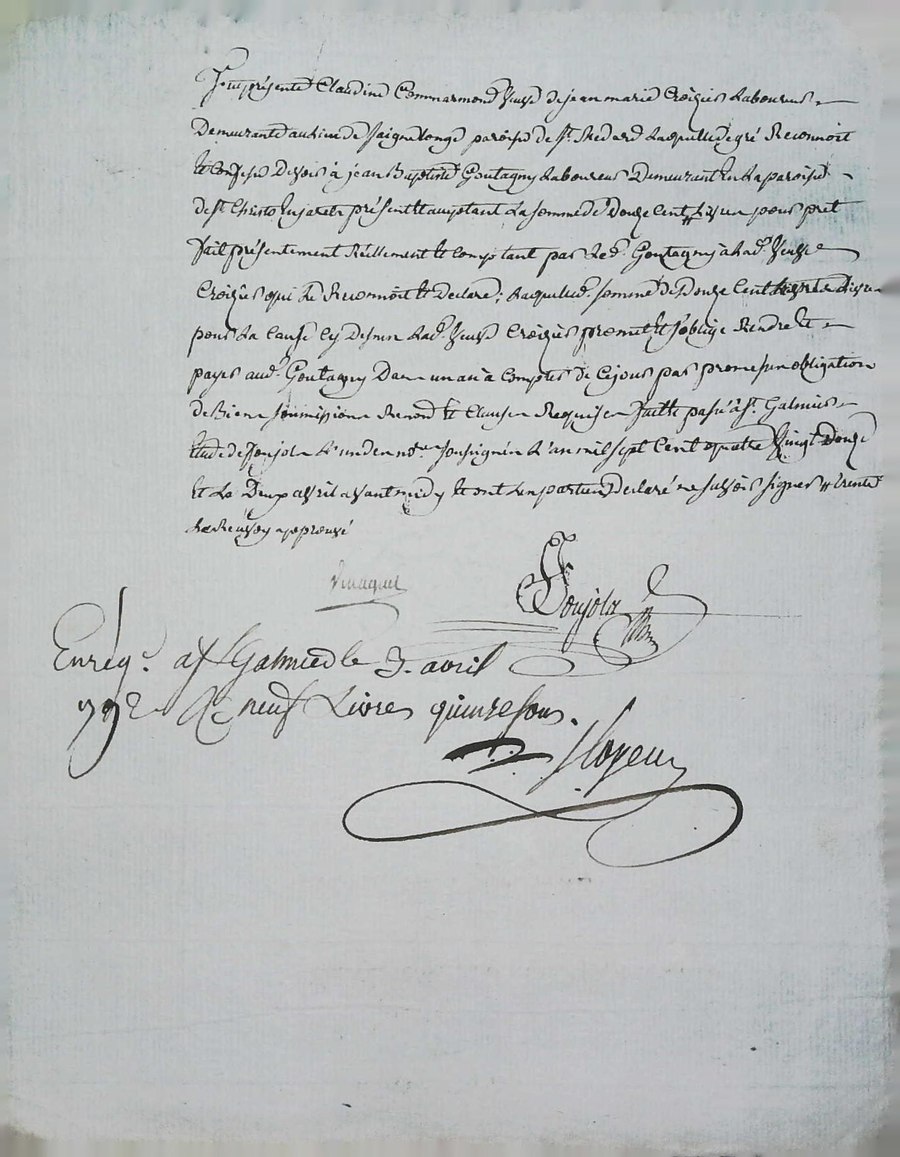 Fut présente Claudine Commarmond veuve de jean marie Croizier Laboureur
Demeurante au lieu de Saignelonge paroisse de St. Medard Laquelle de gré Reconnoit
et Confesse Devoir à jean Baptiste Goutagny Laboureur Demeurant en La paroisse
de St. Christo En jarest présent et acceptant La somme de Douze Cent Livres pour pret
fait présentement Réellement et Comptant par Led. Goutagny à Lad. Veuve
Croizier qui Le Reconnoit et Declare; Laquelle d. somme de Douze Cent Livres
pour La Cause Cy Dessus Lad. Veuve Croizier promet et s'oblige Rendre et
payer aud. Goutagny Dans un an à Compter de Cejour par promesse obligation
de Biens soumissions Renond. et Clauses Requises faitte passé à St. Galmier
Etude de Ponjola L'un des not. soussignés L'an mil sept Cent quatre Vingt Douze
et Le Deux avril avant midy et ont Les parties Declaré ne savoir signer
approuvé
Ponjola
Enrég. a St Galmier le 3. avril
1792 Rc neuf Livres quinze sous.